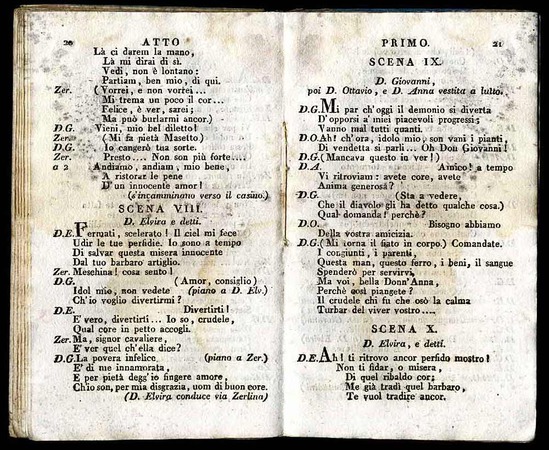 20 ATTO
Là ci darem la mano,
Là mi dirai di sì.
Vedi, non è lontano:
Partiam, ben mio, di quì.
Zer. (Vorrei, e non vorrei...
Mi trema un poco il cor...
Felice, è ver, sarei;
Ma può burlarmi ancor.)
D.G. Vieni, mio bel diletto!
Zer. (Mi fa pietà Masetto)
D.G. Io cangerò tua sorte.
Zer. Presto.... Non son più forte....
a 2 Andiamo, andiam, mio bene,
A ristorar le pene
D'un innocente amor!
(s'incamminano verso il casino.)
SCENA VIII.
D. Elvira e detti.
D.E. Fermati, scelerato! Il ciel mi fece
Udir le tue perfidie. Io sono a tempo
Di salvar questa misera innocente
Dal tuo barbaro artiglio.
Zer. Meschina! cosa sento!
D.G. (Amor, consiglio)
Idol mio, non vedete (piano a D. Elv.)
Ch'io voglio divertirmi?
D.E. Divertirti!
E' vero, divertirti... Io so, crudele,
Qual core in petto accogli.
Zer. Ma, signor cavaliere,
E' ver quel ch'ella dice?
D.G. La povera infelice (piano a Zer.)
E' di me innamorata,
E per pietà degg'io fingere amore,
Ch'io son, per mia disgrazia, uom di buon core.
(D. Elvira conduce via Zerlina)
PRIMO. 21
SCENA IX.
D. Giovanni,
poi D. Ottavio, e D. Anna vestita a lutto.
D.G. Mi par ch'oggi il demonio si diverta
D'opporsi a' miei piacevoli progressi;
Vanno mal tutti quanti.
D.O. Ah! ch'ora, idolo mio, son vani i pianti,
Di vendetta si parli... Oh Don Giovanni!
D.G. (Mancava questo in ver!)
D.A. Amico! a tempo
Vi ritroviam: avete core, avete
Anima generosa?
D.G. (Sta a vedere,
Che il diavolo gli ha detto qualche cosa.)
Qual domanda! perchè?
D.O. Bisogno abbiamo
Della vostra amicizia.
D.G. (Mi torna il fiato in corpo.) Comandate.
I congiunti, i parenti,
Questa man, questo ferro, i beni, il sangue
Spenderò per servirvi,
Ma voi, bella Donn'Anna,
Perchè così piangete?
Il crudele chi fu che osò la calma
Turbar del viver vostro....
SCENA X.
D. Elvira, e detti.
D.E. Ah! ti ritrovo ancor perfido mostro!
Non ti fidar, o misera,
Di quel ribaldo cor;
Me già tradì quel barbaro,
Te vuol tradire ancor.